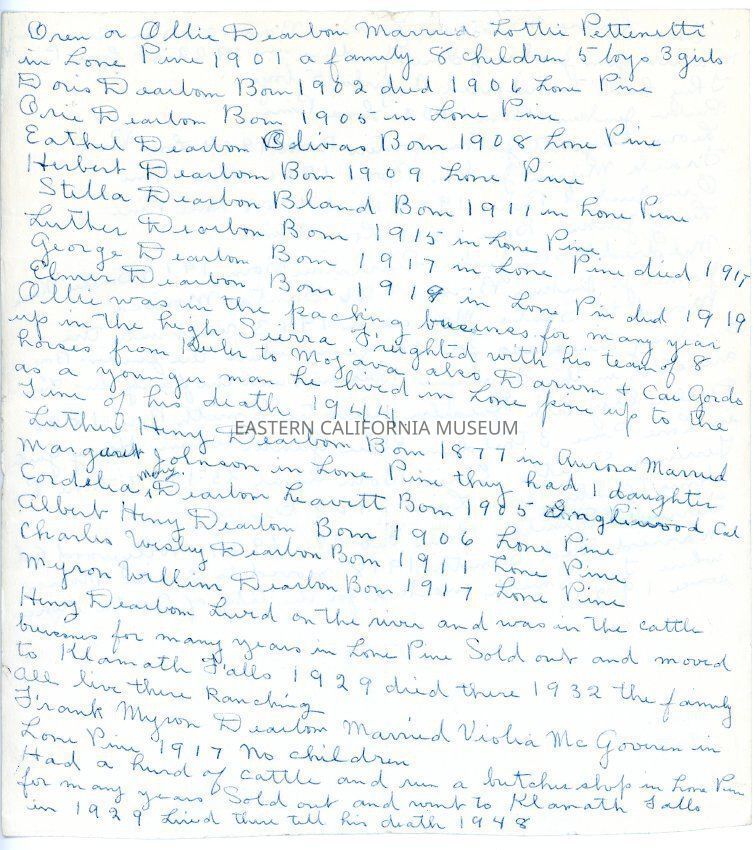 Oren or Ollie Dearbon Married Lottie Pettenetti
in Lone Pine 1901 a family 8 children 5 boys 3 girls
Doris Dearbom Born 1902 died 1906 Lone Pine
Orie Dearbom Born 1905 in Lone Pine
Eathel Dearbon Olivas Born 1908 Lone Pine
Herbert Dearbom Born 1909 Lone Pine
Stella Dearbon Bland Born 1911 in Lone Pine
Luther Dearbon Born 1915 in Lone Pine
George Dearbon Born 1917 in Lone Pine died 1917
Elmer Dearbon Born 1919 in Lone Pin died 1919
Ollie was in the packing busenes for many year
up in the high Sierra Freighted with his team of 8
horses from Keeler to Mojava also Darwin + Cae Gordo
as a younger man he lived in Lone pine up to the
Time of his death 1944
EASTERN CALIFORNIA MUSEUM
Luther Henry Dearbom Born 1877 in Aurora Married
Margaret Johnson in Lone Pine they had 1 daughter
Cordelia Mary Dearbom Leavitt Born 1905 Inglewood Cal
Albert Henry Dearbom Born 1906 Lone Pine
Charlis Wesley Dearbon Born 1911 Lone Pine
Myron Willim Dearbon Born 1917 Lone Pine
Henry Dearbom Lived on the river and was in the cattle
buisnes for many years in Lone Pine Sold out and moved
to Klamath Falls 1929 died there 1932 the family
all live there Ranching
Frank Myron Dearbom Married Violia Mc Goveren in
Lone Pine 1917 No children
Had a hurd of cattle and run a butcher shop in Lone Pine
for many years Sold out and went to Klamath Falls
in 1929 Lived there till his death 1948